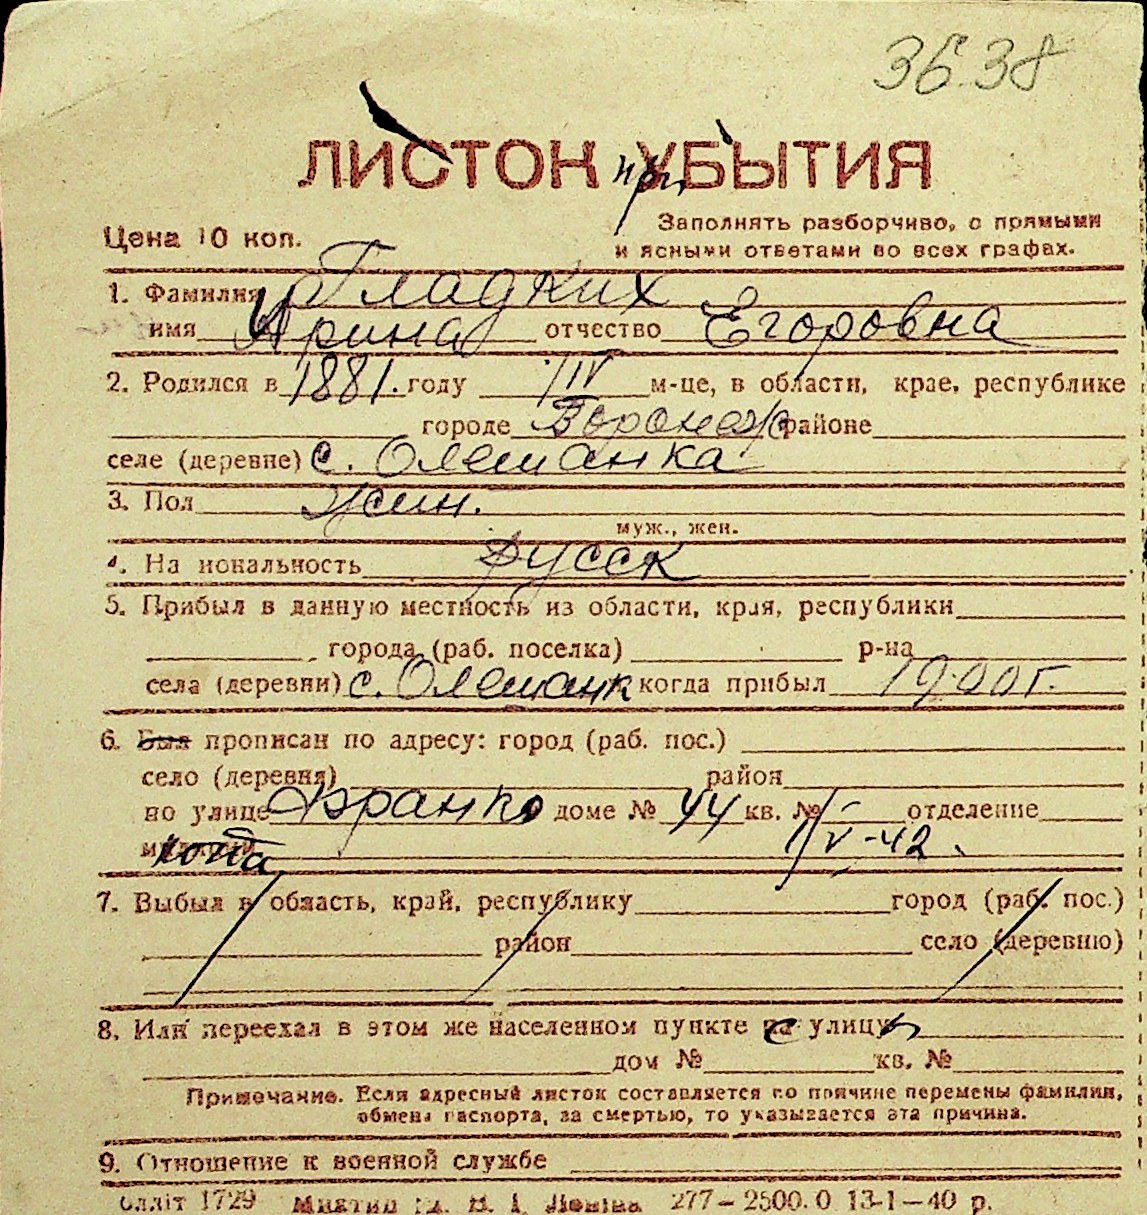 3638
ЛИСТОК УБЫТИЯ
при
Цена 10 коп.
Заполнять разборчиво, с прямыми
и ясными ответами во всех графах.
1. Фамилия Гладких
имя Ирина отчество Егоровна
2. Родился в 1881. году IV м-це, в области, крае, республике
городе Воронеж районе
селе (деревне) с. Олешанка
3. Пол жин.
муж., жен.
4. На иональность русск
5. Прибыл в данную местность из области, края, республики
города (раб. поселка) р-на
села (деревни) с. Олешанк когда прибыл 1900 г.
6. Был прописан по адресу: город (раб. пос.)
село (деревня) район
по улице Франко доме № 44 кв. № – отделение
милиции 1/V-42.
7. Выбыл в область, край, республику город (раб. пос.)
район село (деревню)
8. Или переехал в этом же населенном пункте на улицу
дом № кв. №
Примечание. Если адресный листок составляется по причине перемены фамилии,
обмена паспорта, за смертью, то указывается эта причина.
9. Отношение к военной службе
Облліт 1729 277–2500.0 13-1–40 р.